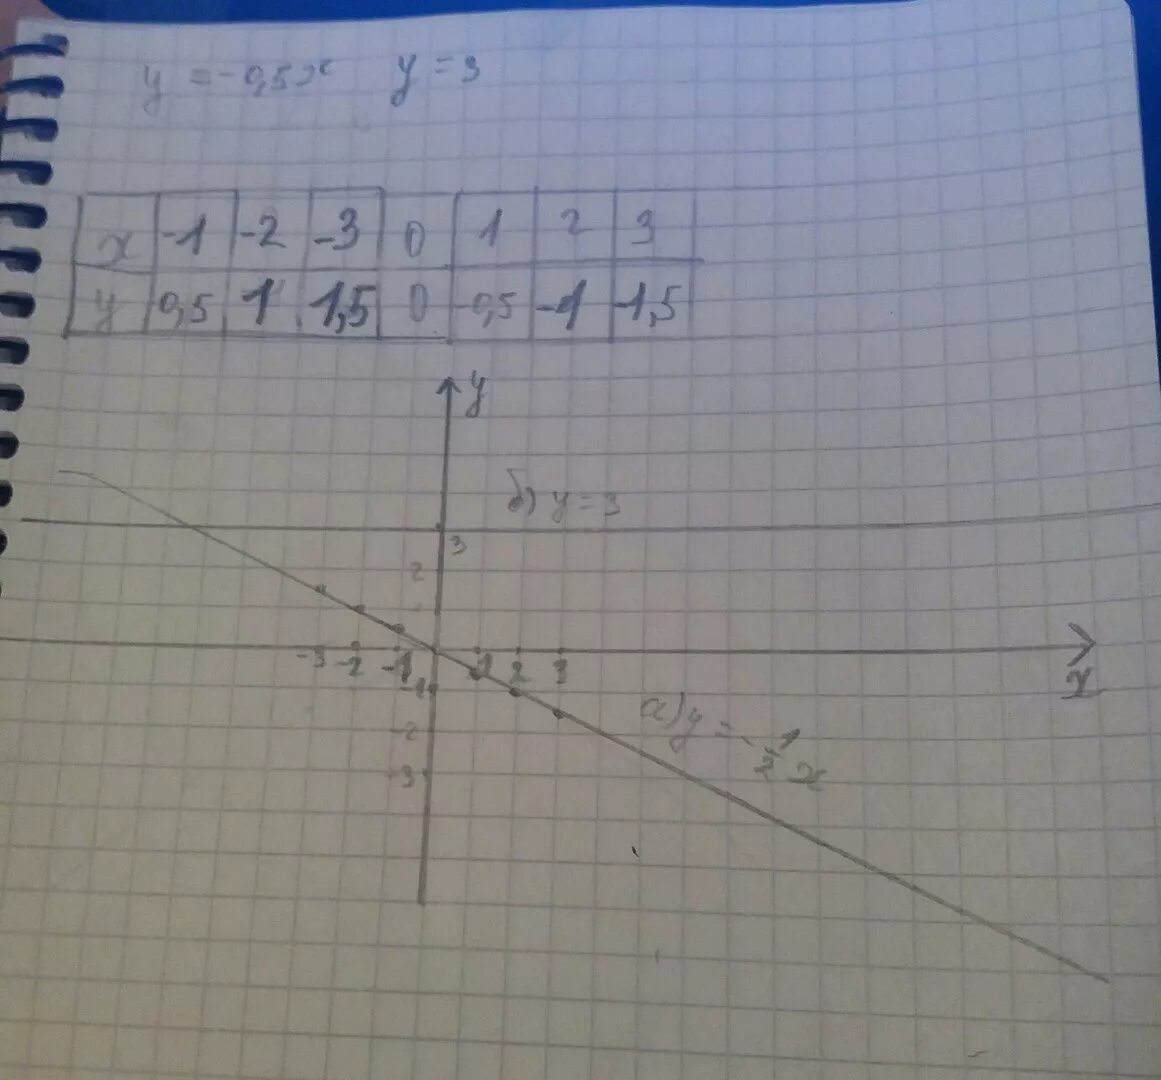 y = -0,5x y = 3
x -1 -2 -3 0 1 2 3
y 0,5 1 1,5 0 -0,5 -1 -1,5
y
б) y = 3
3
2
-3 -2 -1 1 2 3
x
-1
а) y = -1/2 x
-2
-3